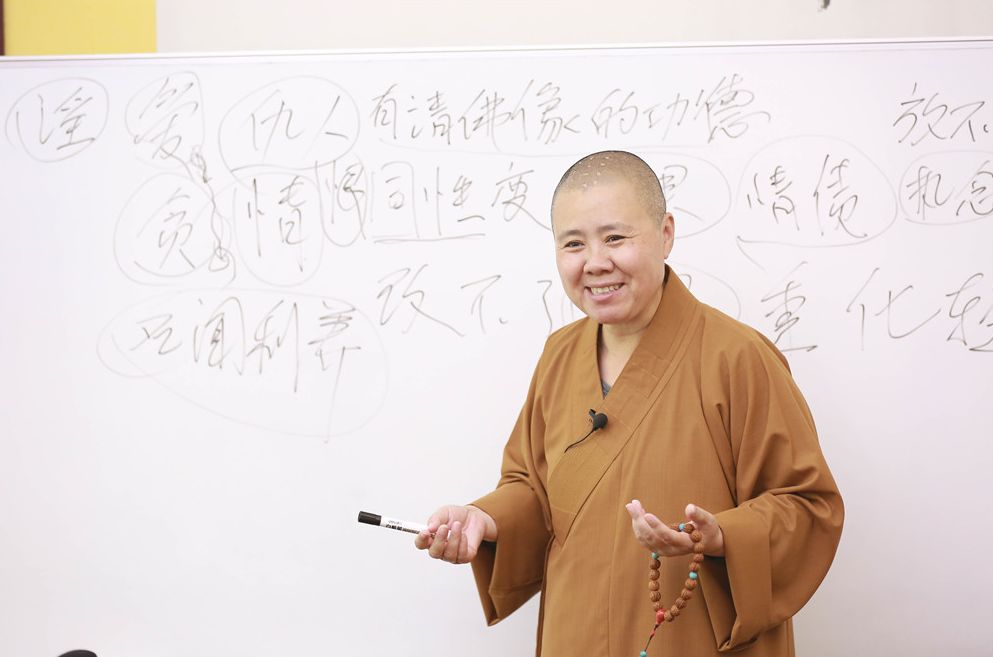 淫 爱 仇人 有请佛像的功德 放不
贪 情 恨 同性变 情债 执念
改不了 重 化
闻利养